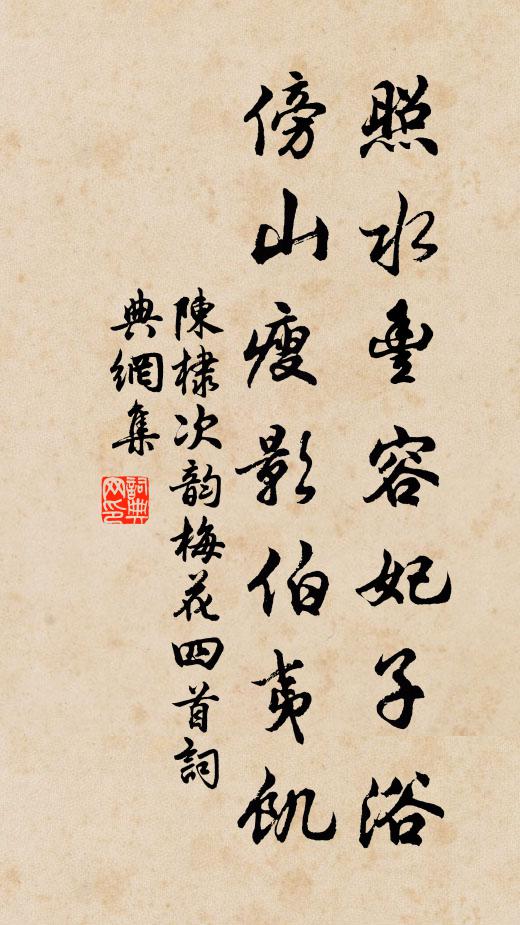 照水豐容妃子浴
傍山瘦影伯夷飢
陳棣次韵梅花四首詞
典網集
詞典網印